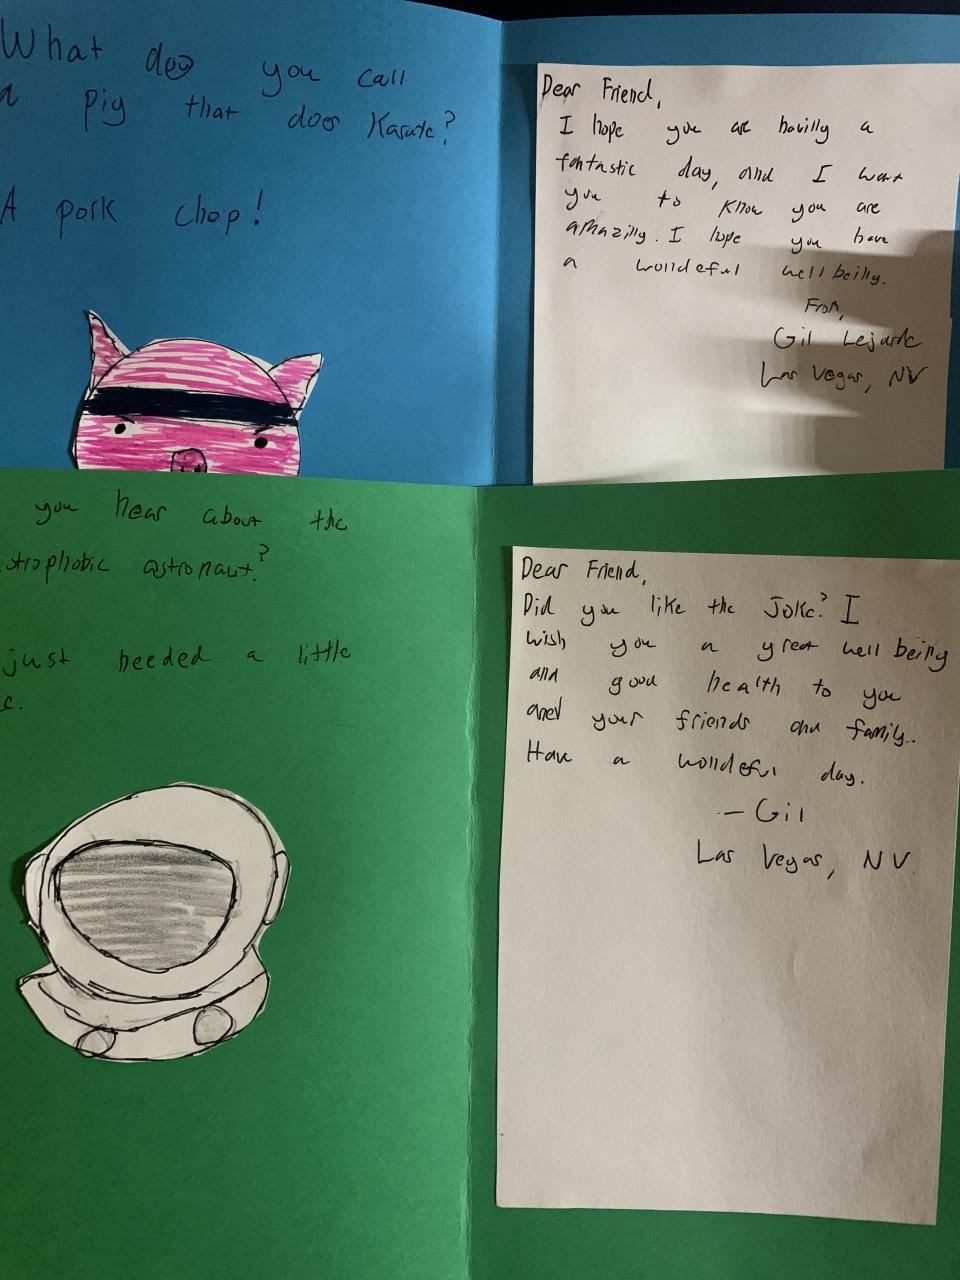 What do you call
a pig that does Karate?
A pork chop!
Dear Friend,
I hope you are having a
fantastic day, and I want
you to know you are
amazing. I hope you have
a wonderful well being.
From,
Gil
Las Vegas, NV
you hear about the
strophobic astronaut?
just needed a little
e.
Dear Friend,
Did you like the Joke? I
wish you a great well being
and good health to you
and your friends and family.
Have a wonderful day.
- Gil
Las Vegas, NV